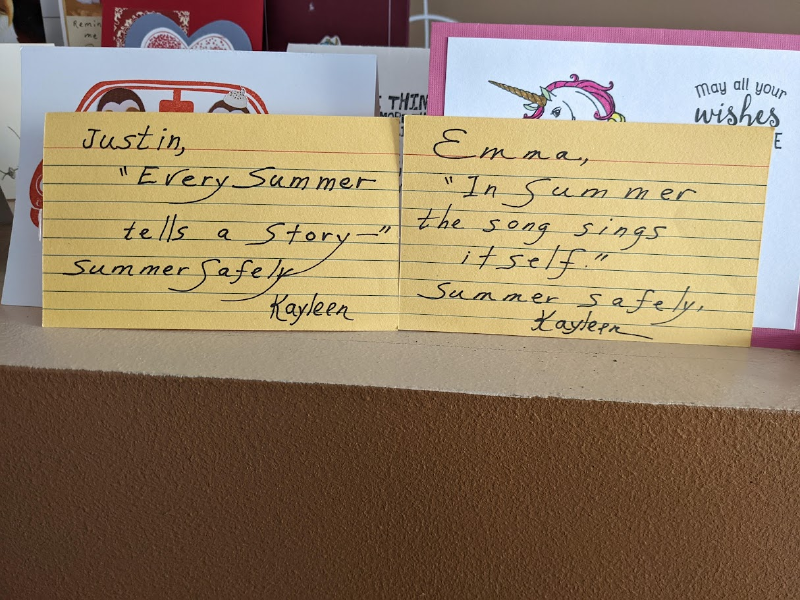 Remin
me
THIN
May all your
wishes
E
Justin,
"Every Summer
tells a Story—"
Summer Safely
Kayleen
Emma,
"In Summer
the song sings
itself."
Summer safely,
Kayleen